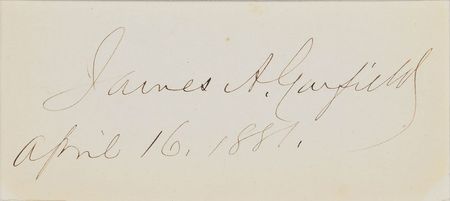 James A. Garfield
April 16. 1881.